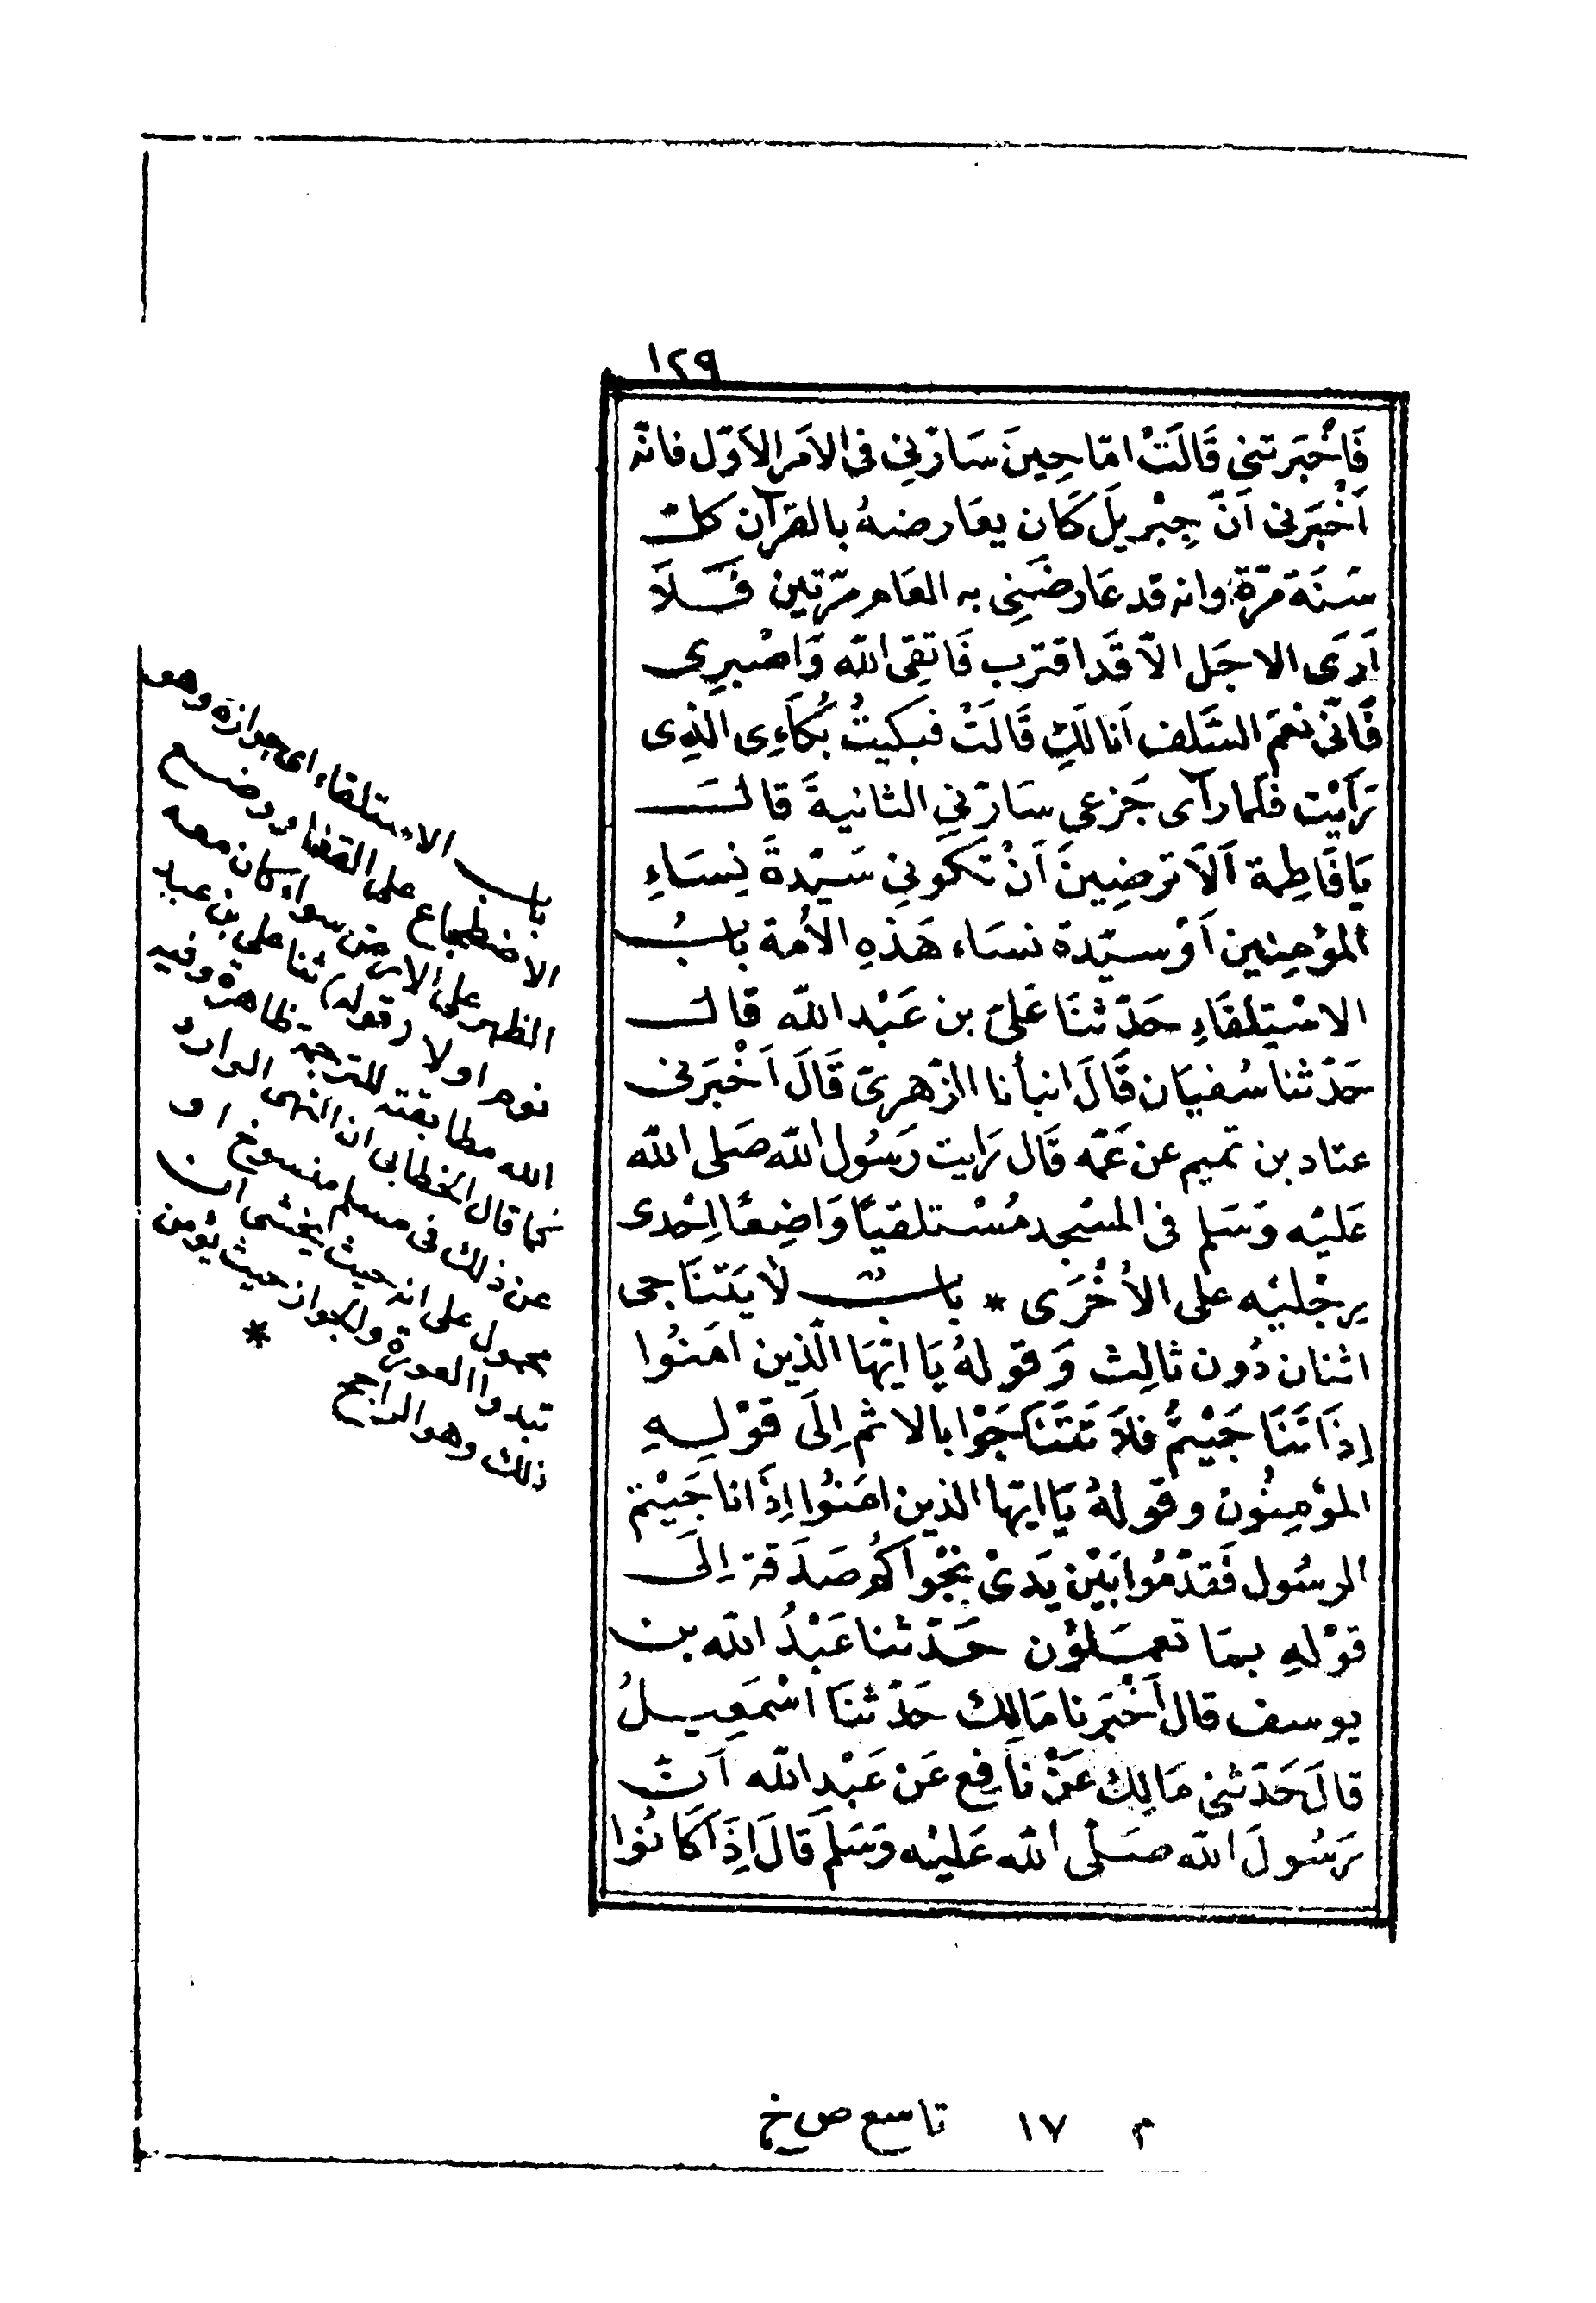 ١٢٩
فَأَخْبَرتنى قَالَتْ امّا حِينَ سَارّنِي فى الامَر الاَوّل فانّه
اَخْبَرنى اَنّ جِبْريلَ كَان يعَارضهُ بالقرآن كلّ
سَنَة مَرّة وانه قد عَارضَنِي به العَام مرّتين فَلاَ
اَرَى الاجَل الاّ قَد اقترب فَاتقِى الله وَاصْبِرِى
فَانّى نعمَ السَّلف اَنا لَكِ قَالَتْ فبكيتُ بُكَاءِى الذِى
رَاَيْت فلَما رآى جَزعى سَارّني الثانيةَ قالَ
يَا فَاطِمة اَلاَ ترضِينَ اَنْ تَكونِي سَيّدةَ نِسَاءِ
المؤمِنِين اَوْ سيّدة نسَاء هَذِهِ الاُمة بابُ
الاسْتِلقَاءِ حَدّثنَا عَلىّ بن عَبْد الله قالَ
حَدّثنا سُفيَان قَالَ انبأنا الزّهرىّ قَالَ اَخْبَرنى
عبّاد بن تميم عن عَمّه قَال رَايت رَسُول الله صَلى الله
عَليْه وَسَلم فى المسْجد مُسْتلقيًا وَاضِعًا اِحْدى
رِجْليْه على الاُخْرَى * بابٌ لاَ يَتنَاجى
اثنان دُون ثالِث وَقولهُ يَا ايّهَا الّذين امَنُوا
اِذَا تَنَاجَيْتمُ فلاَ تَتَنَاجَوْا بالاثم اِلَى قوْلِهِ
المؤمِنُون وقولهُ يَا ايّها الذين امَنُوا اِذَا ناجَيْتم
الرسُول فَقدّمُوا بَيْن يَدىْ نجْواكُم صَدَقة اِلَى
قوْلهِ بمَا تعمَلوُن حَدّثنا عَبْدُ الله بن
يوسف قال اَخْبَرنا مَالِك حَدّثنَا اسْمَعِيلُ
قالَ حَدّثنى مَالِك عَنْ نافِع عَن عَبْدِ الله اَنّ
رَسُولَ الله صَلّى الله عَليْه وَسَلَم قَالَ اِذَا كَانُوا
باب الاستلقاء اى جوازه وهو
الاضطجاع على القفا ووضع
الظهر على الارض سواء كان معه
نوم او لا (قوله) ثنا على بن عبد
الله مطابقته للترجمة ظاهرة وفيه
كما قال الخطابى ان النهى الوارد
عن ذلك فى مسلم منسوخ او
محمول على انه حيث يخشى ان
تبدوا العورة والجواز حيث يؤمن
ذلك وهو الراجح *
م ١٧ تاسع ص خ